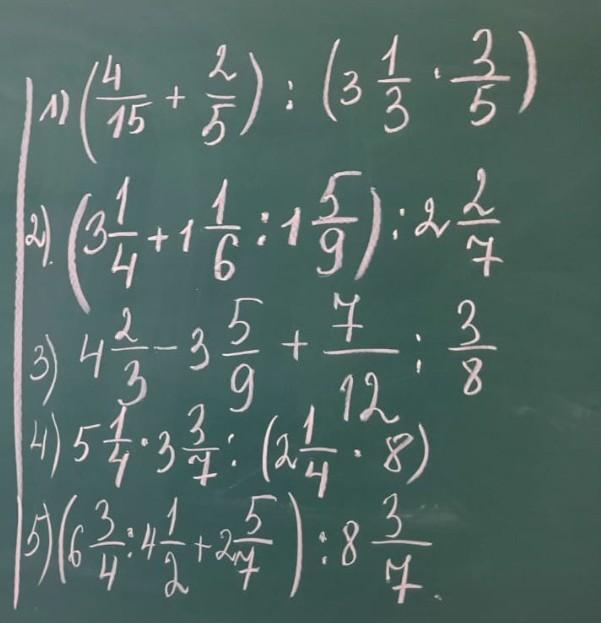 1) (4/15 + 2/5) : (3 1/3 · 3/5)
2) (3 1/4 + 1 1/6 : 1 5/9) : 2 2/7
3) 4 2/3 - 3 5/9 + 7/12 : 3/8
4) 5 1/4 · 3 3/7 : (2 1/4 · 8)
5) (6 3/4 : 4 1/2 + 2 5/7) : 8 3/7